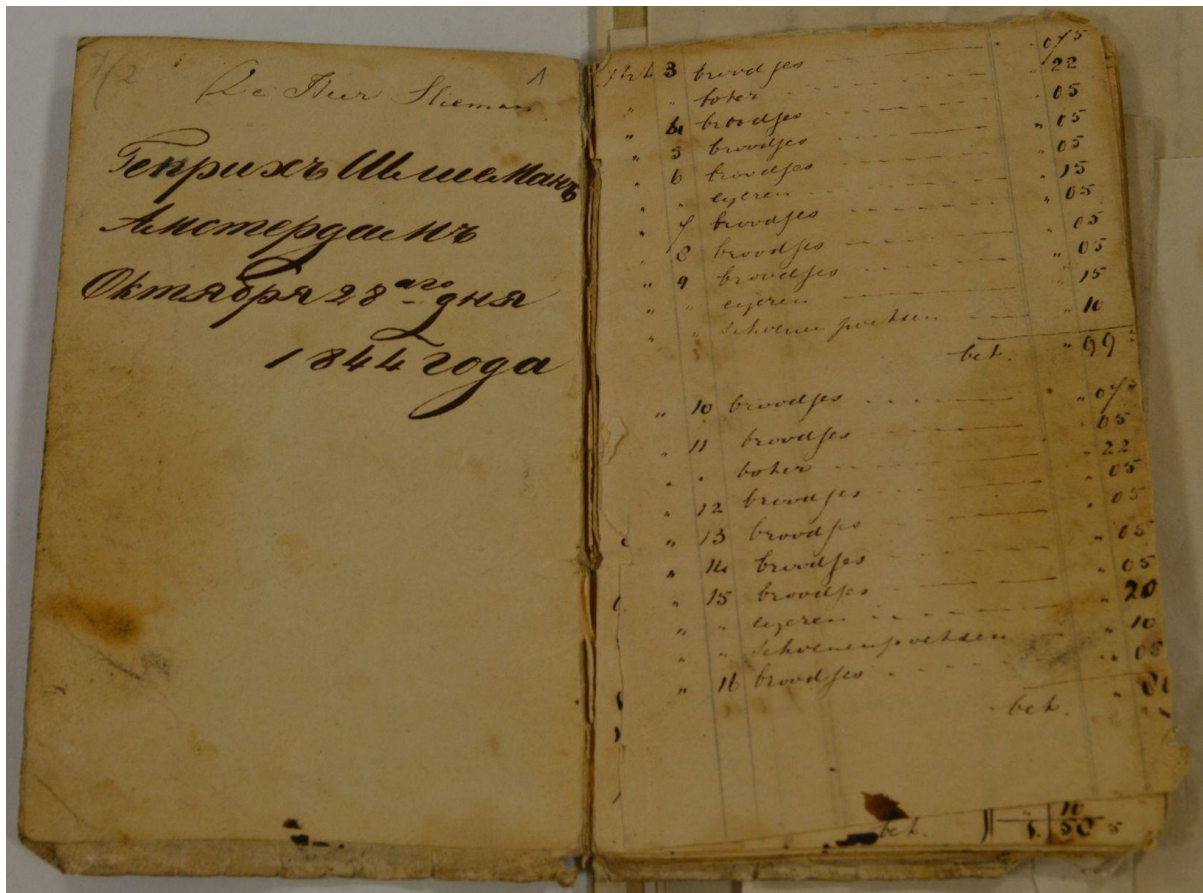 1
De Heer Slieman
Генрихъ Шлиеманъ
Амстердамъ
Октября 28 аго дня
1844 года
3 broodjes 07 5
" boter " 22
" 4 broodjes " 05
" 5 broodjes " 05
" 6 broodjes " 05
" " eyeren " 15
" 7 broodjes " 05
" 8 broodjes " 05
" 9 broodjes " 05
" " eyeren " 15
" " schoenenpoetsen " 10
bet. " 99
" 10 broodjes " 07 5
" 11 broodjes " 05
" " boter " 22
" 12 broodjes " 05
" 13 broodjes " 05
" 14 broodjes " 05
" 15 broodjes " 05
" " eyeren " 20
" " schoenenpoetsen " 10
" 16 broodjes " 05
bet. "
bet.
10
50 5